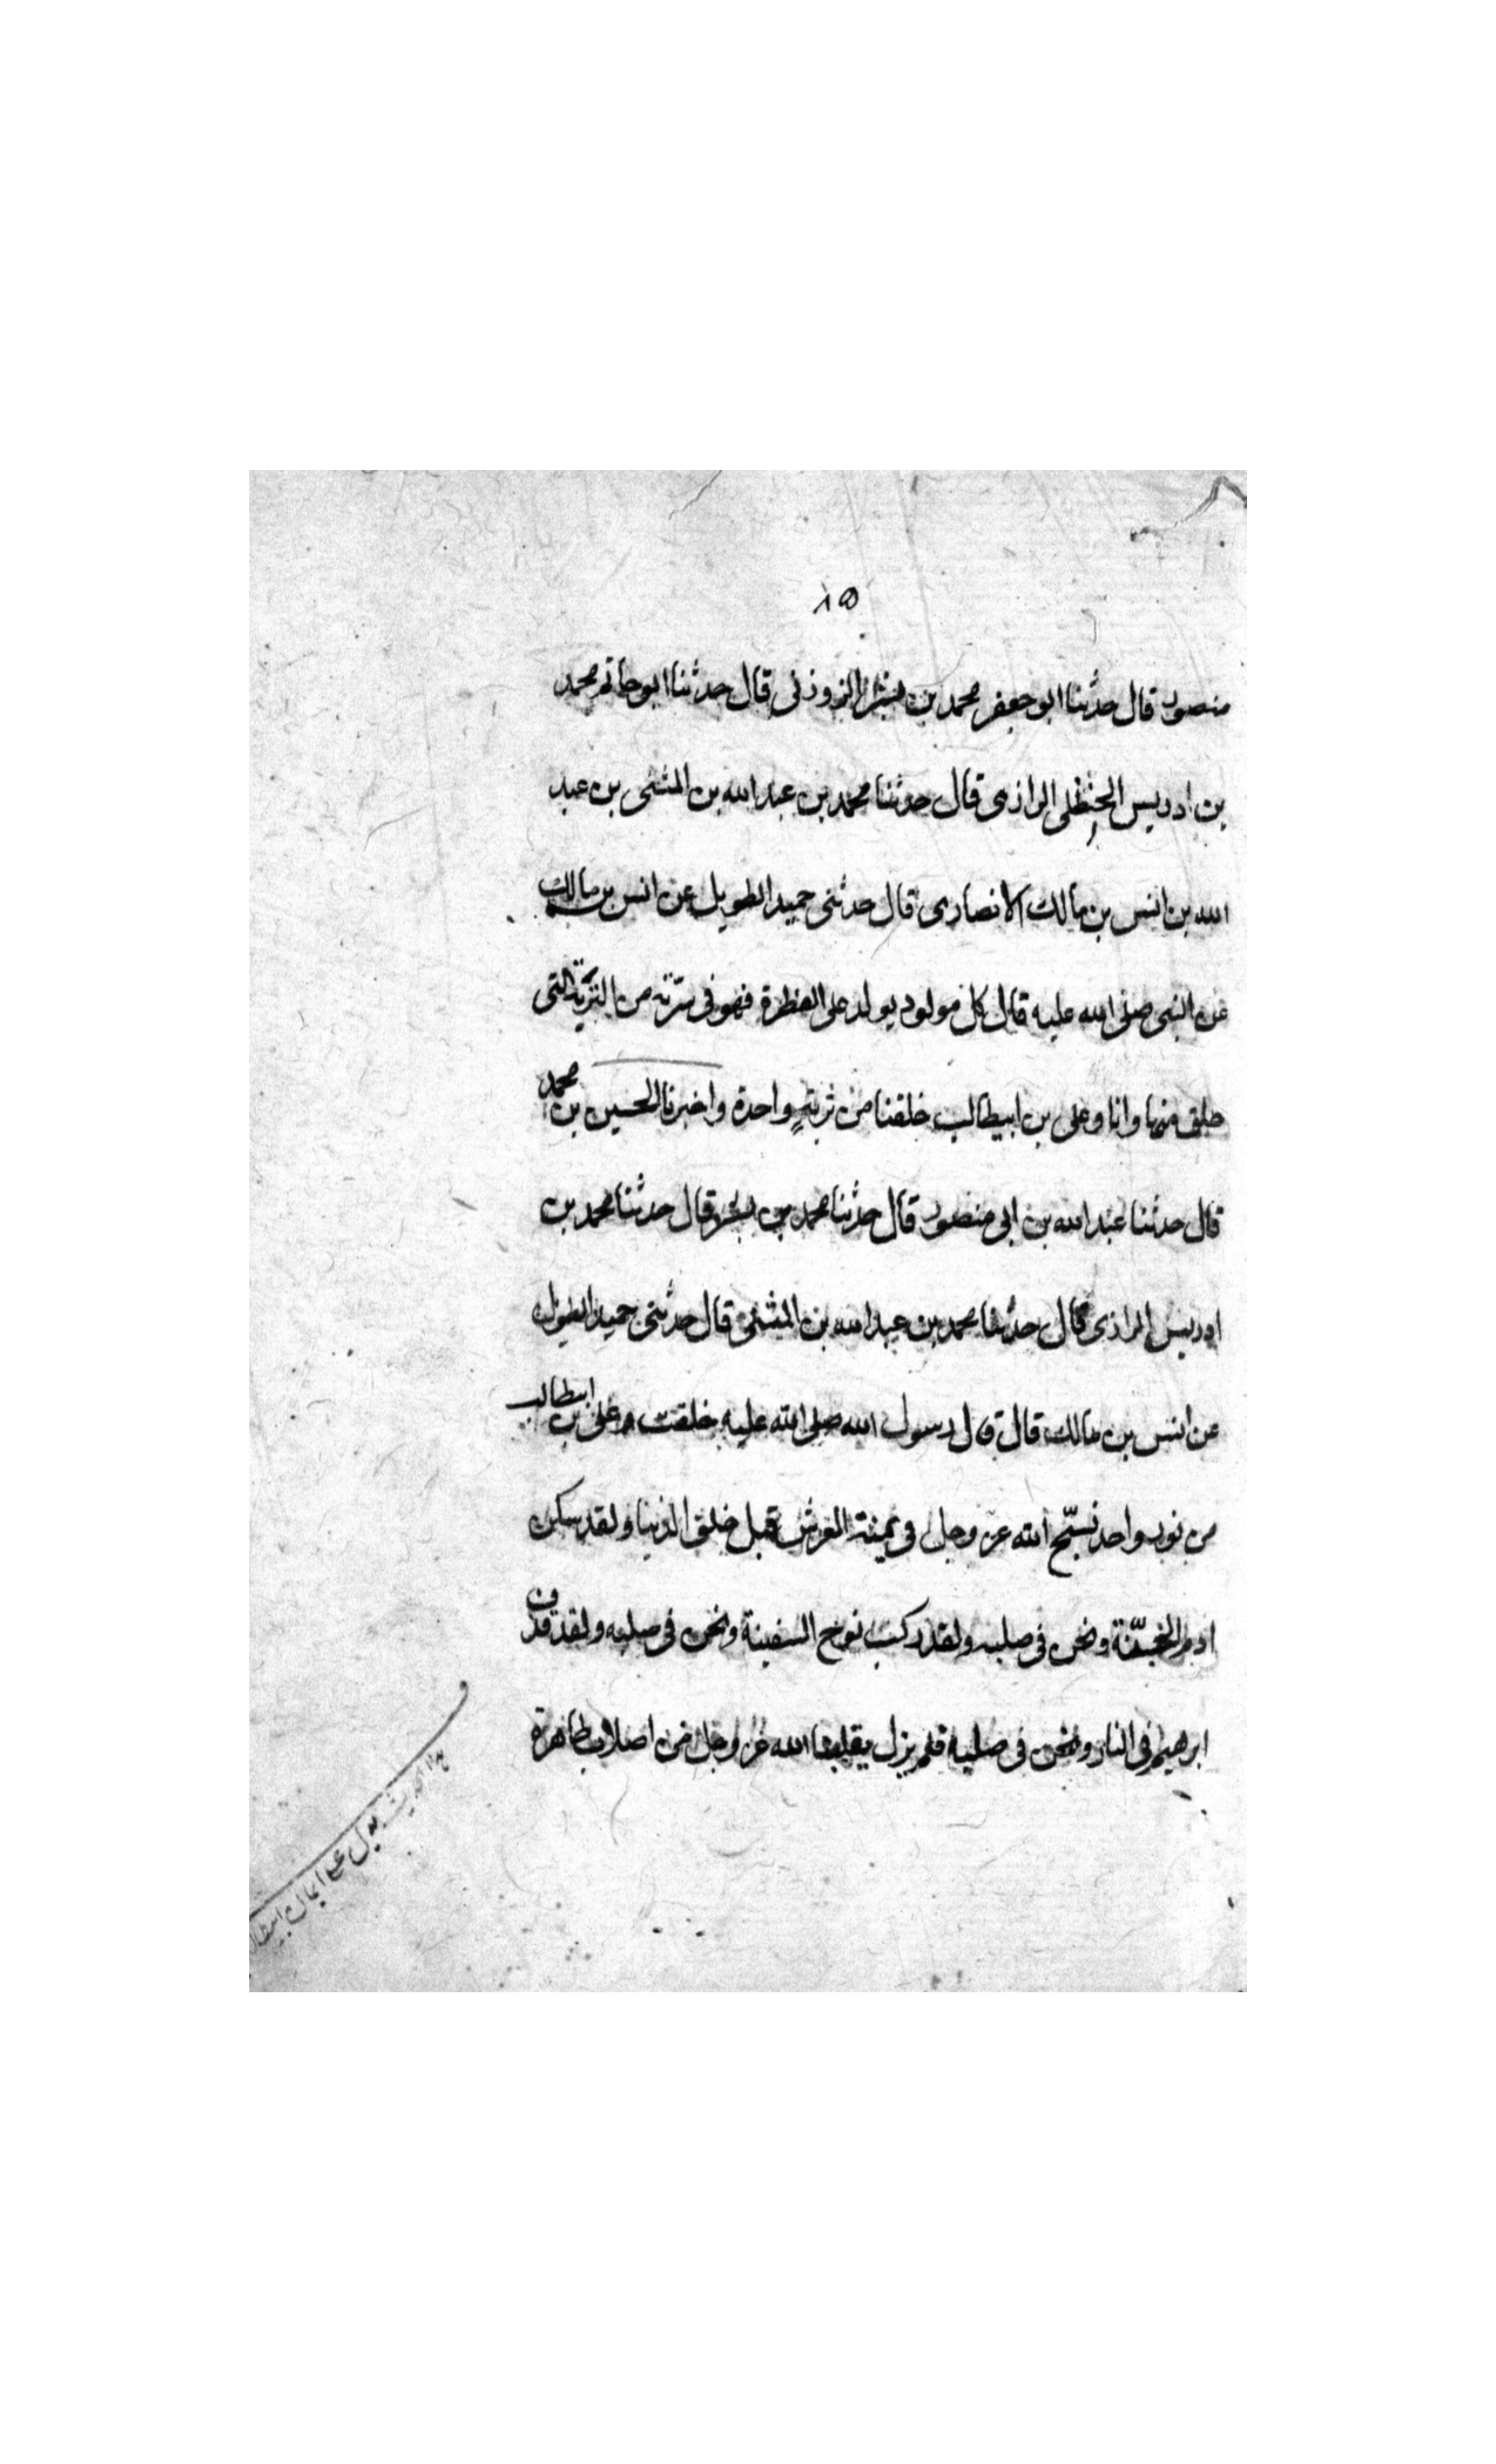 ١٥
منصور قال حدثنا ابو جعفر محمد بن بشر الزوزنى قال حدثنا ابو حاتم محمد
بن ادريس الحنظلى الرازى قال حدثنا محمد بن عبد الله بن المثنى بن عبد
الله بن انس بن مالك الانصارى قال حدثنى حميد الطويل عن انس بن مالك
عن النبى صلى الله عليه قال كل مولود يولد على الفطرة فهو فى من التربة التى
خلق منها وانا وعلى بن ابيطالب خلقنا من تربةٍ واحدة واخبرنا الحسين بن محمد
قال حدثنا عبد الله بن ابى منصور قال حدثنا محمد بن قال حدثنا محمد بن
ادريس الرازى قال حدثنا محمد بن عبد الله بن المثنى قال حدثنى حميد الطويل
عن انس بن مالك قال قال رسول الله صلى الله عليه خلقت وعلى بن ابيطالب
من نور واحد نسبّح الله عز وجل فى يمنة العرش قبل خلق الدنيا ولقد سكن
ادم الجنّة ونحن فى صلبه ولقد ركب نوح السفينة ونحن فى صلبه ولقد قذف
ابرهيم فى النار ونحن فى صلبه فلم يزل يقلبنا الله عز وجل من اصلاب طاهرة
هذا الحديث يدل على ايمان